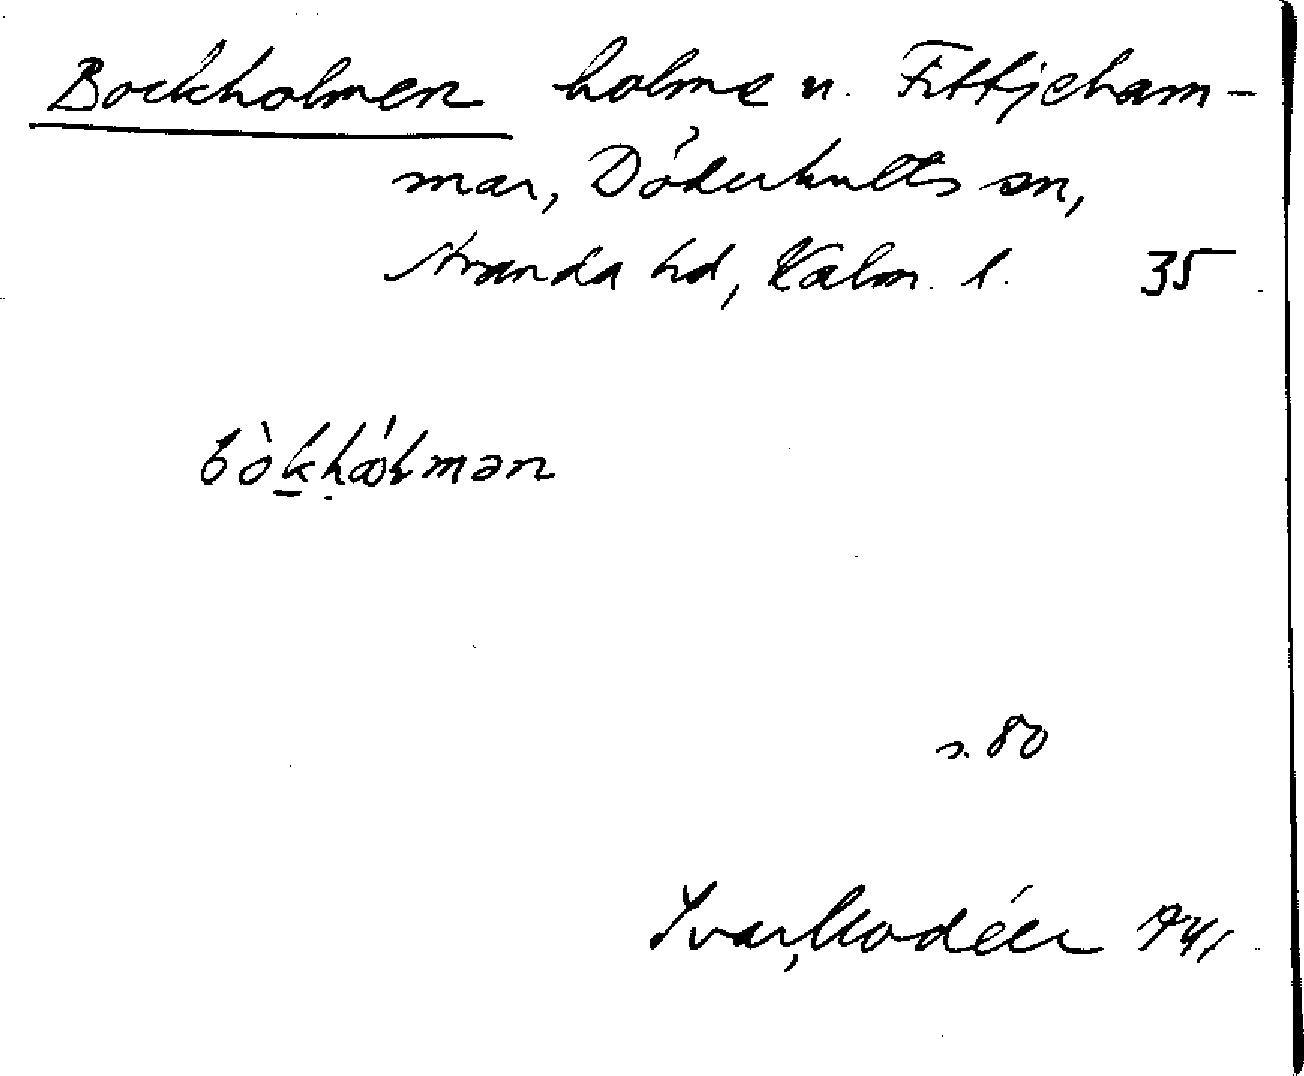 Bockholmen holme n. Fittjeham-
mar, Döderhults sn,
Stranda hd, Kalm. l. 35
bòkhólmən
s. 80
Ivar Modéer 1941